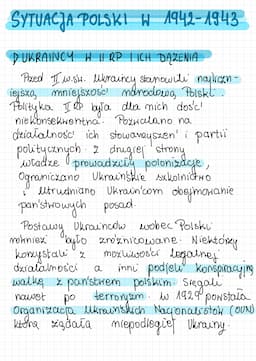 SYTUACJA POLSKI W 1942-1943
1) UKRAIŃCY W II RP I ICH DĄŻENIA
Przed II w.św. Ukraińcy stanowili najliczn-
iejszą mniejszość narodową Polski.
Polityka II RP była dla nich dość
niekonsekwentna. Pozwalano na
działalność ich stowarzyszeń i partii
politycznych. Z drugiej strony
władze prowadziły polonizację,
Ograniczano Ukraińskie szkolnictwo
i Utrudniano Ukraińcom obejmowanie
państwowych posad.
Postawy Ukraińców wobec Polski
również było zróżnicowane. Niektórzy
korzystali z możliwości legalnej
działalności a inni podjęli konspiracyjną
walkę z państwem polskim. Sięgali
nawet po terroryzm. W 1929 powstała
Organizacja Ukraińskich Nacjonalistów (OUN)
która żądała niepodległej Ukrainy.